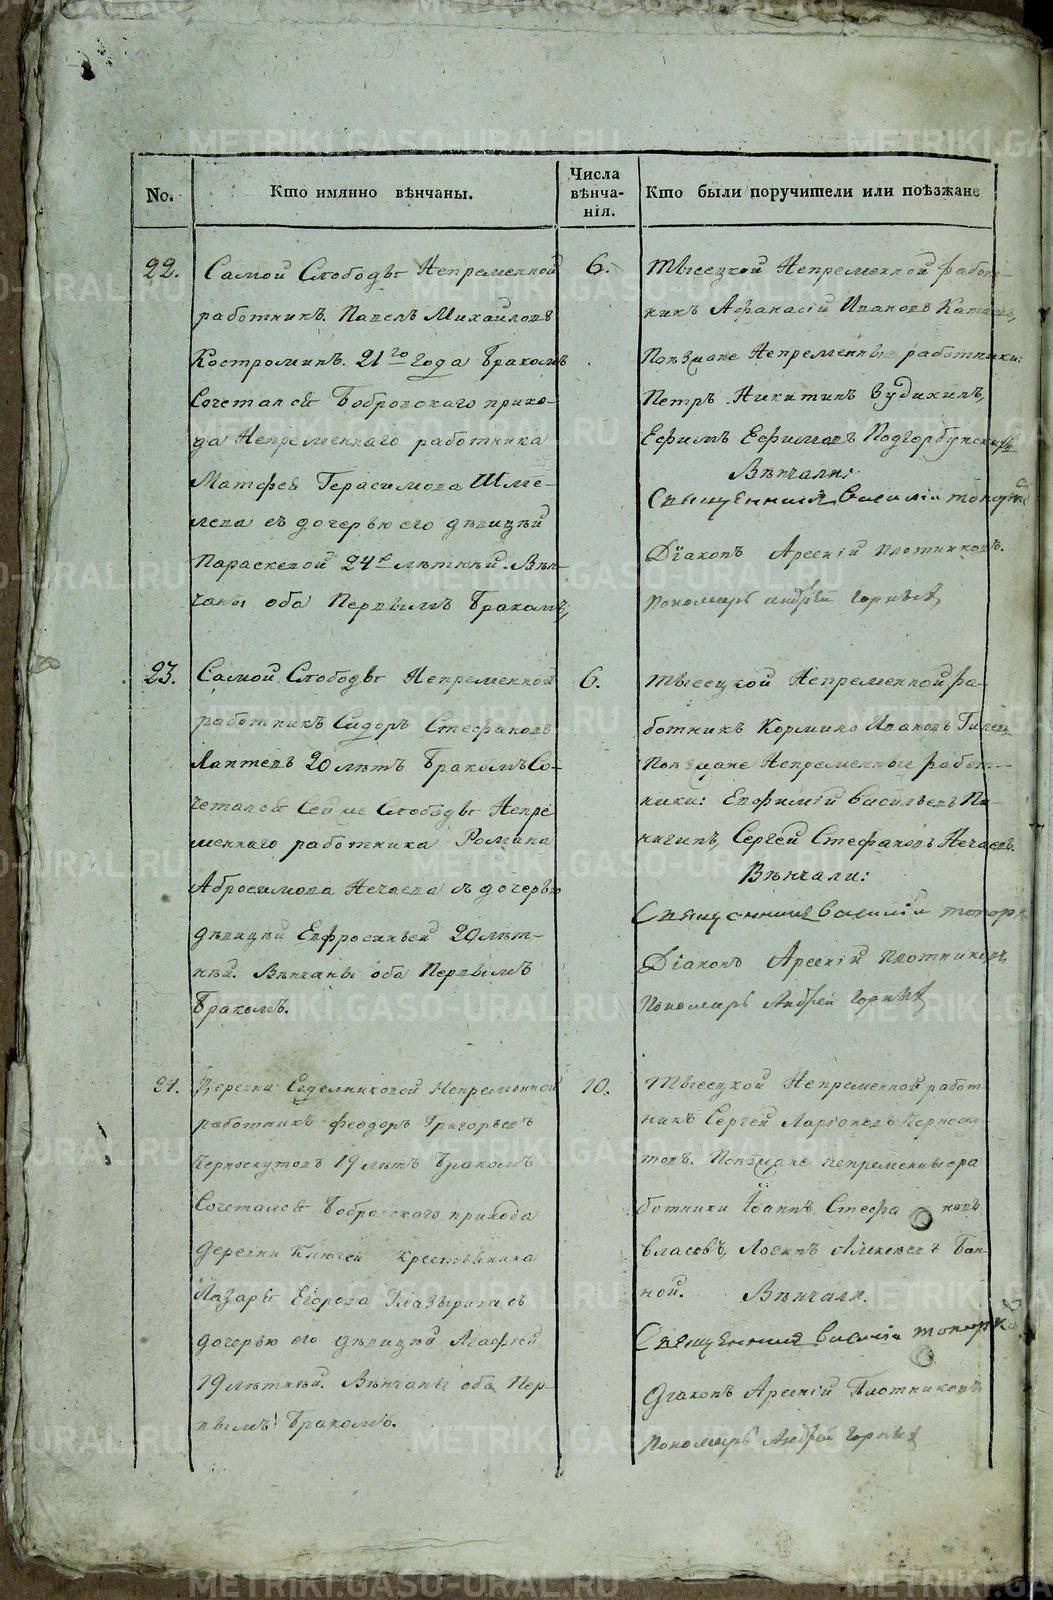 No.
Кто имянно вѣнчаны.
Числа
вѣнча-
нія.
Кто были поручители или поѣзжане
22.
Самой Слободы Непременной
работникъ Павелъ Михайловъ
Костроминъ. 21 го года бракомъ
Сочетался Бобровскаго прихо-
да Непременнаго работника
Матфея Герасимова Шме-
лева съ дочерью его дѣвицей
Параскевой 24 е лѣтней. Вѣн-
чаны оба Первымъ бракомъ,
6.
Непременной работ-
никъ Афанасій Ивановъ
Поѣзжане Непременные работники:
Петръ Никитинъ Зудихинъ,
Ефимъ Ефимовъ Подгорбунскихъ
Вѣнчали:
Священникъ Василій
Діаконъ Арсеній Плотниковъ.
Пономарь Андрей
23.
Самой Слободы Непременной
работникъ Сидоръ Стефановъ
Лаптевъ 20 лѣтъ бракомъ Со-
четался Сей же Слободы Непре
меннаго работника Романа
Абросимова Нечаева съ дочерью
дѣвицей Евфросиньей 20 лѣт-
ней. Вѣнчаны оба Первымъ
бракомъ.
6.
Непременной ра-
ботникъ Кормило Ивановъ
Поѣзжане Непременные работ-
ники: Евфимій Васильевъ Пи-
чигинъ, Сергей Стефановъ Нечаевъ.
Вѣнчали:
Священникъ Василій
Діаконъ Арсеній Плотниковъ,
Пономарь Андрей
24.
Деревни Седельниковой Непременной
работникъ Феодоръ Григорьевъ
Черноскутовъ 19 лѣтъ бракомъ
Сочетался Бобровскаго прихода
деревни Ключей крестьянина
Лазаря Егорова Глазырина съ
дочерью его дѣвицей Агафьей
19 лѣтней. Вѣнчаны оба Пер-
вымъ бракомъ.
10.
Непременной работ
никъ Сергей Ларіоновъ Черноску-
товъ. Поѣзжане непременные ра
ботники Іоаннъ Стефа новъ
Власовъ, Логинъ Алексеевъ Бан-
ной. Вѣнчали.
Священникъ Василій
Діаконъ Арсеній Плотниковъ
Пономарь Андрей
METRIKI.GASO-URAL.RU